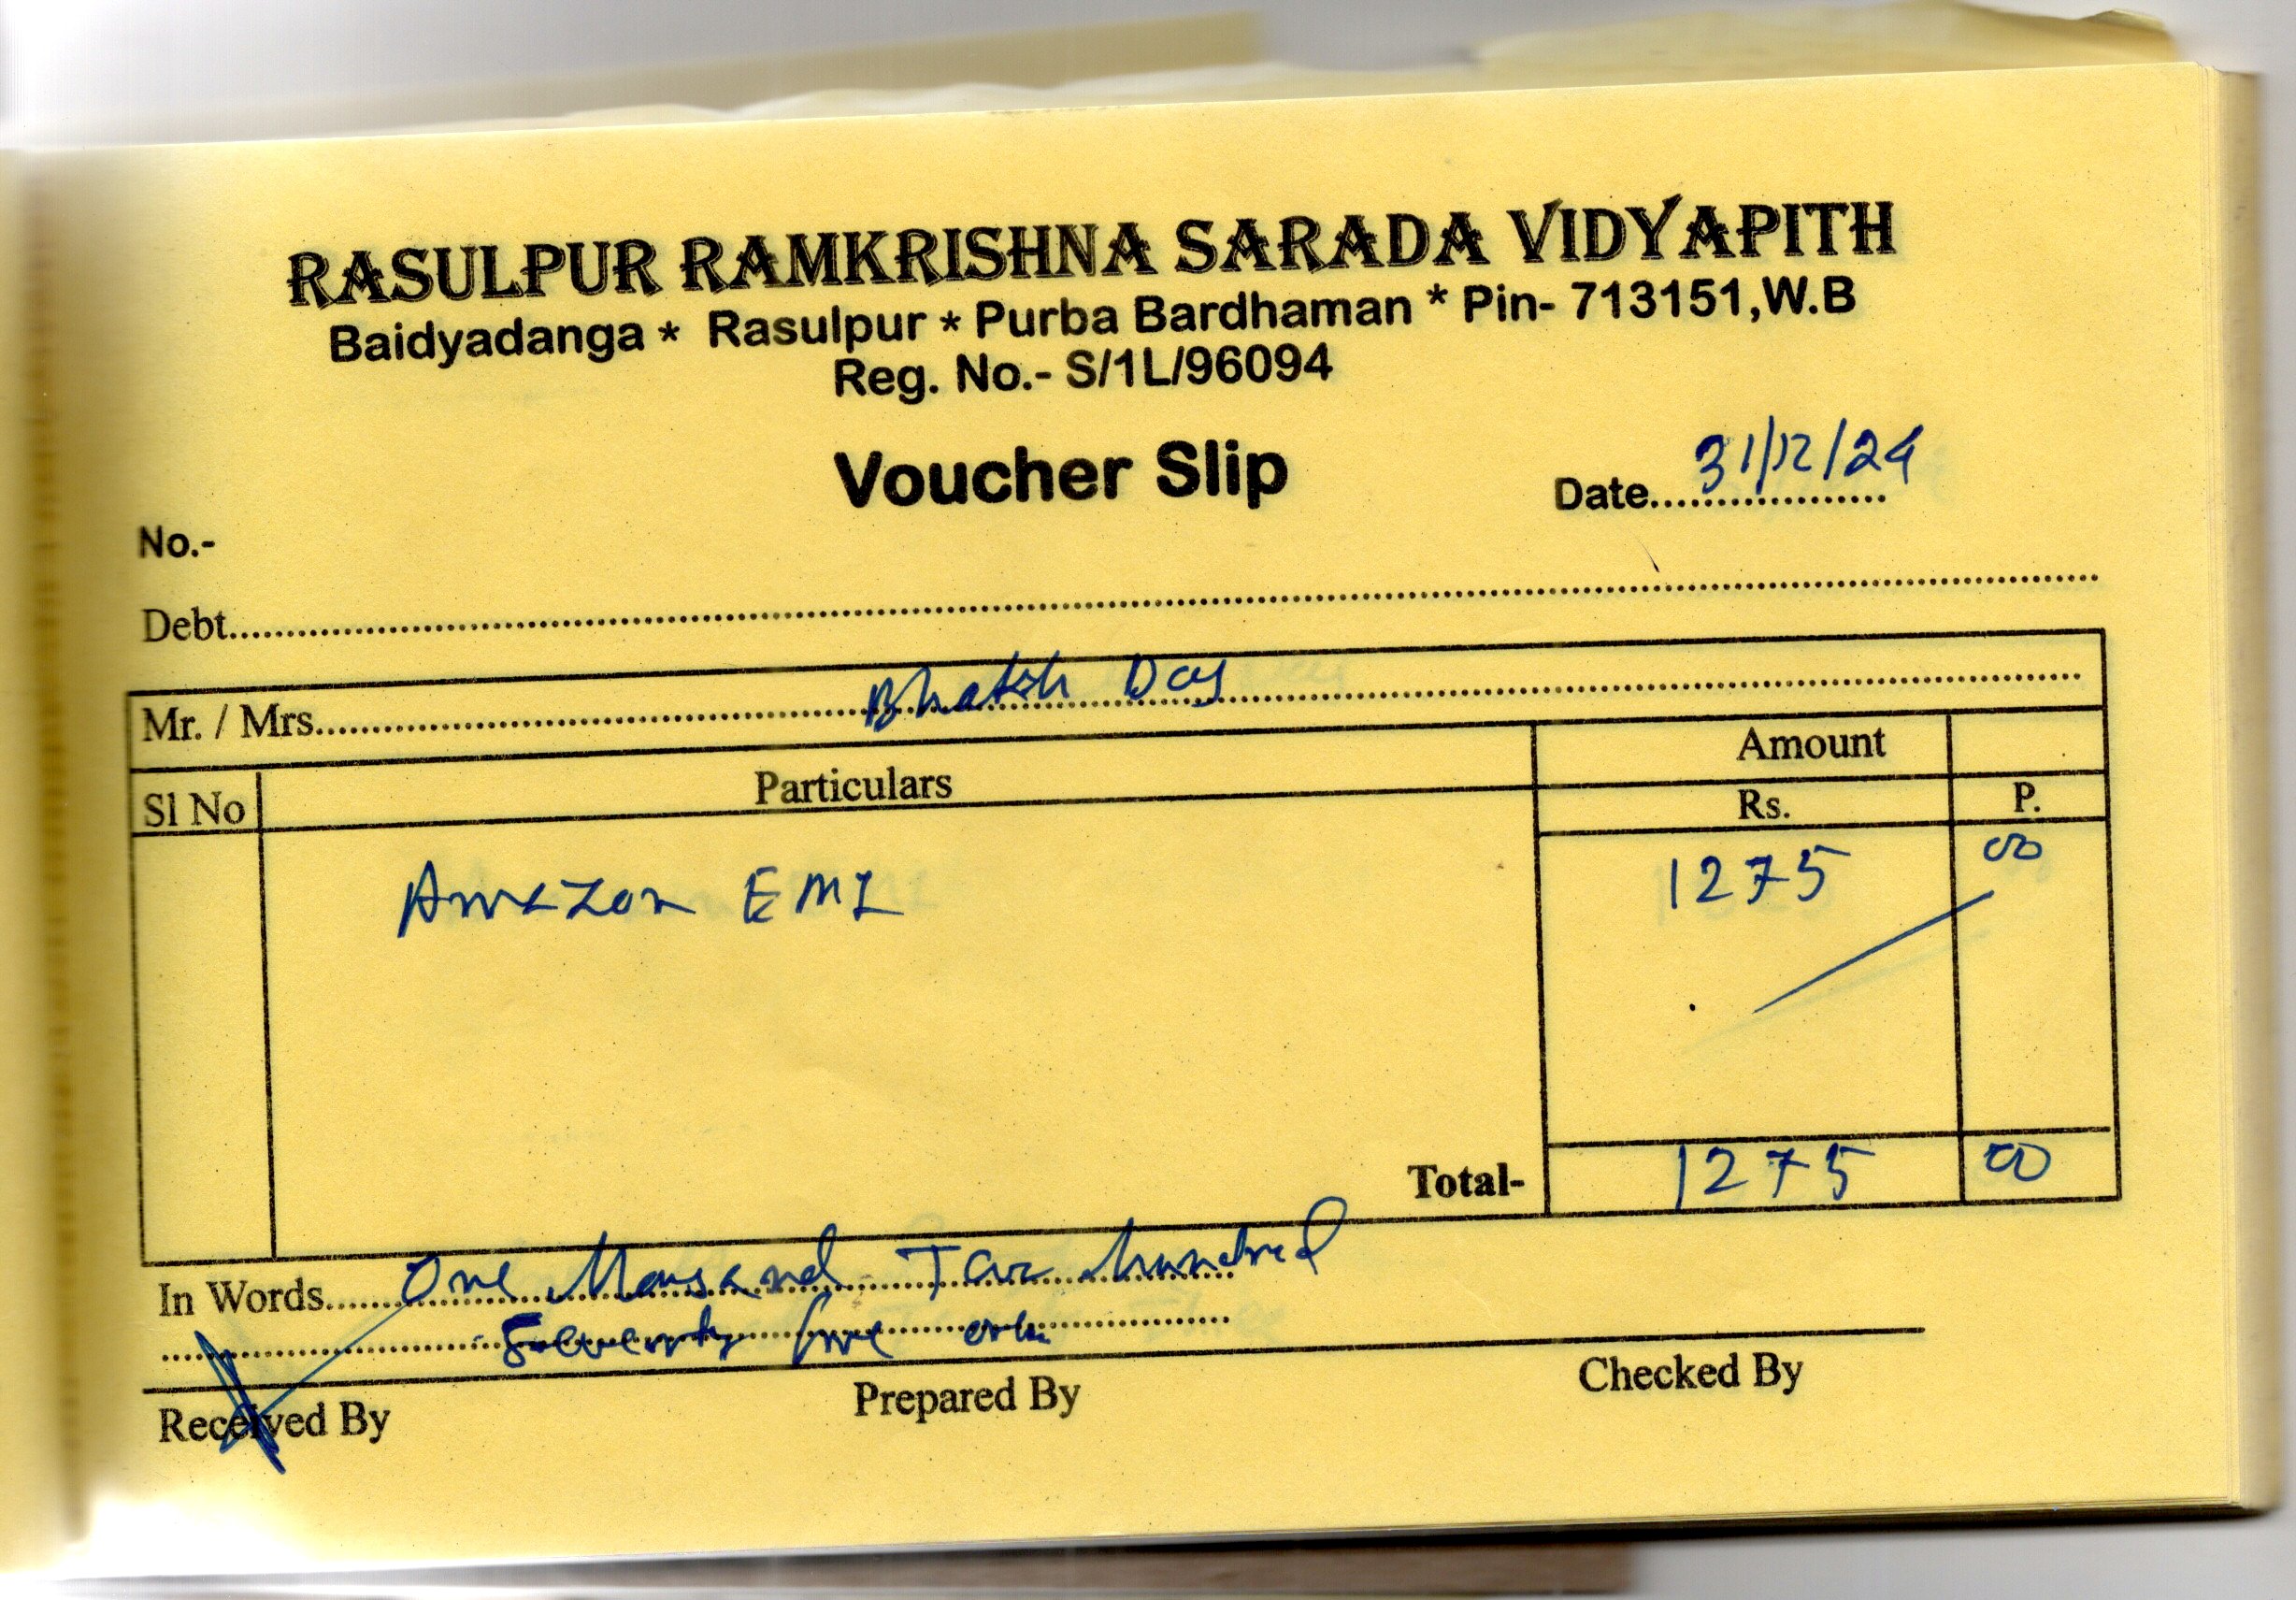 RASULPUR RAMKRISHNA SARADA VIDYAPITH
Baidyadanga * Rasulpur * Purba Bardhaman * Pin- 713151,W.B
Reg. No.- S/1L/96094
Voucher Slip
Date 31/12/24
No.-
Debt
Mr. / Mrs. Das
Sl No Particulars Amount
Rs. P.
Amazon EMI 1275 00
Total- 1275 00
In Words One thousand Two hundred
Seventy five only
Received By Prepared By Checked By